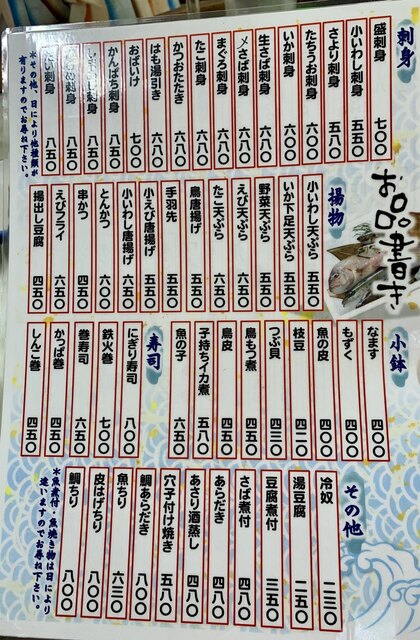 お品書き
刺身
盛刺身 七〇〇
小いわし刺身 五五〇
さより刺身 五五〇
たちうお刺身 五八〇
いか刺身 六〇〇
生さば刺身 六〇〇
〆さば刺身 六八〇
まぐろ刺身 六八〇
たこ刺身 六八〇
かつおたたき 六八〇
はも湯引き 六八〇
おばいけ 七〇〇
かんぱち刺身 八五〇
刺身 八五〇
刺身 八五〇
刺身 八五〇
*その他、日により他種類が
有りますのでお尋ね下さい。
揚物
小いわし天ぷら 五五〇
いか下足天ぷら 五五〇
野菜天ぷら 五五〇
えび天ぷら 六五〇
たこ天ぷら 六五〇
鳥唐揚げ 五五〇
手羽先 五五〇
小えび唐揚げ 五五〇
小いわし唐揚げ 五五〇
とんかつ 六〇〇
串かつ 四五〇
えびフライ 六五〇
揚出し豆腐 四五〇
小鉢
なます 四〇〇
もずく 四〇〇
魚の皮 四〇〇
枝豆 四二〇
つぶ貝 四三〇
鳥もつ煮 四五〇
鳥皮 四五〇
子持ちイカ煮 五八〇
魚の子 六五〇
寿司
にぎり寿司 八〇〇
鉄火巻 七〇〇
巻寿司 六五〇
かっぱ巻 四五〇
しんこ巻 四五〇
その他
冷奴 二三〇
湯豆腐 二五〇
豆腐煮付 三五〇
さば煮付 四八〇
あらだき 四八〇
あさり酒蒸し 四八〇
穴子付け焼き 五八〇
鯛あらだき 八〇〇
魚ちり 六三〇
皮はげちり 八〇〇
鯛ちり 八〇〇
*魚煮付、魚焼き物は日により
違いますのでお尋ね下さい。